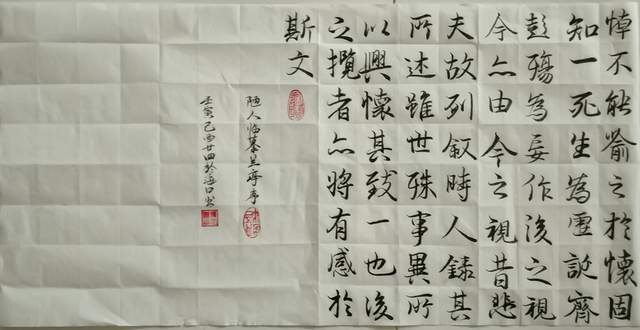 悼不能喻之於懷固
知一死生為虛誕齊
彭殤為妄作後之視
今亦由今之視昔悲
夫故列叙時人錄其
所述雖世殊事異所
以興懷其致一也後
之攬者亦將有感於
斯文
陋人临摹兰亭序
壬寅己酉廿四於海口书